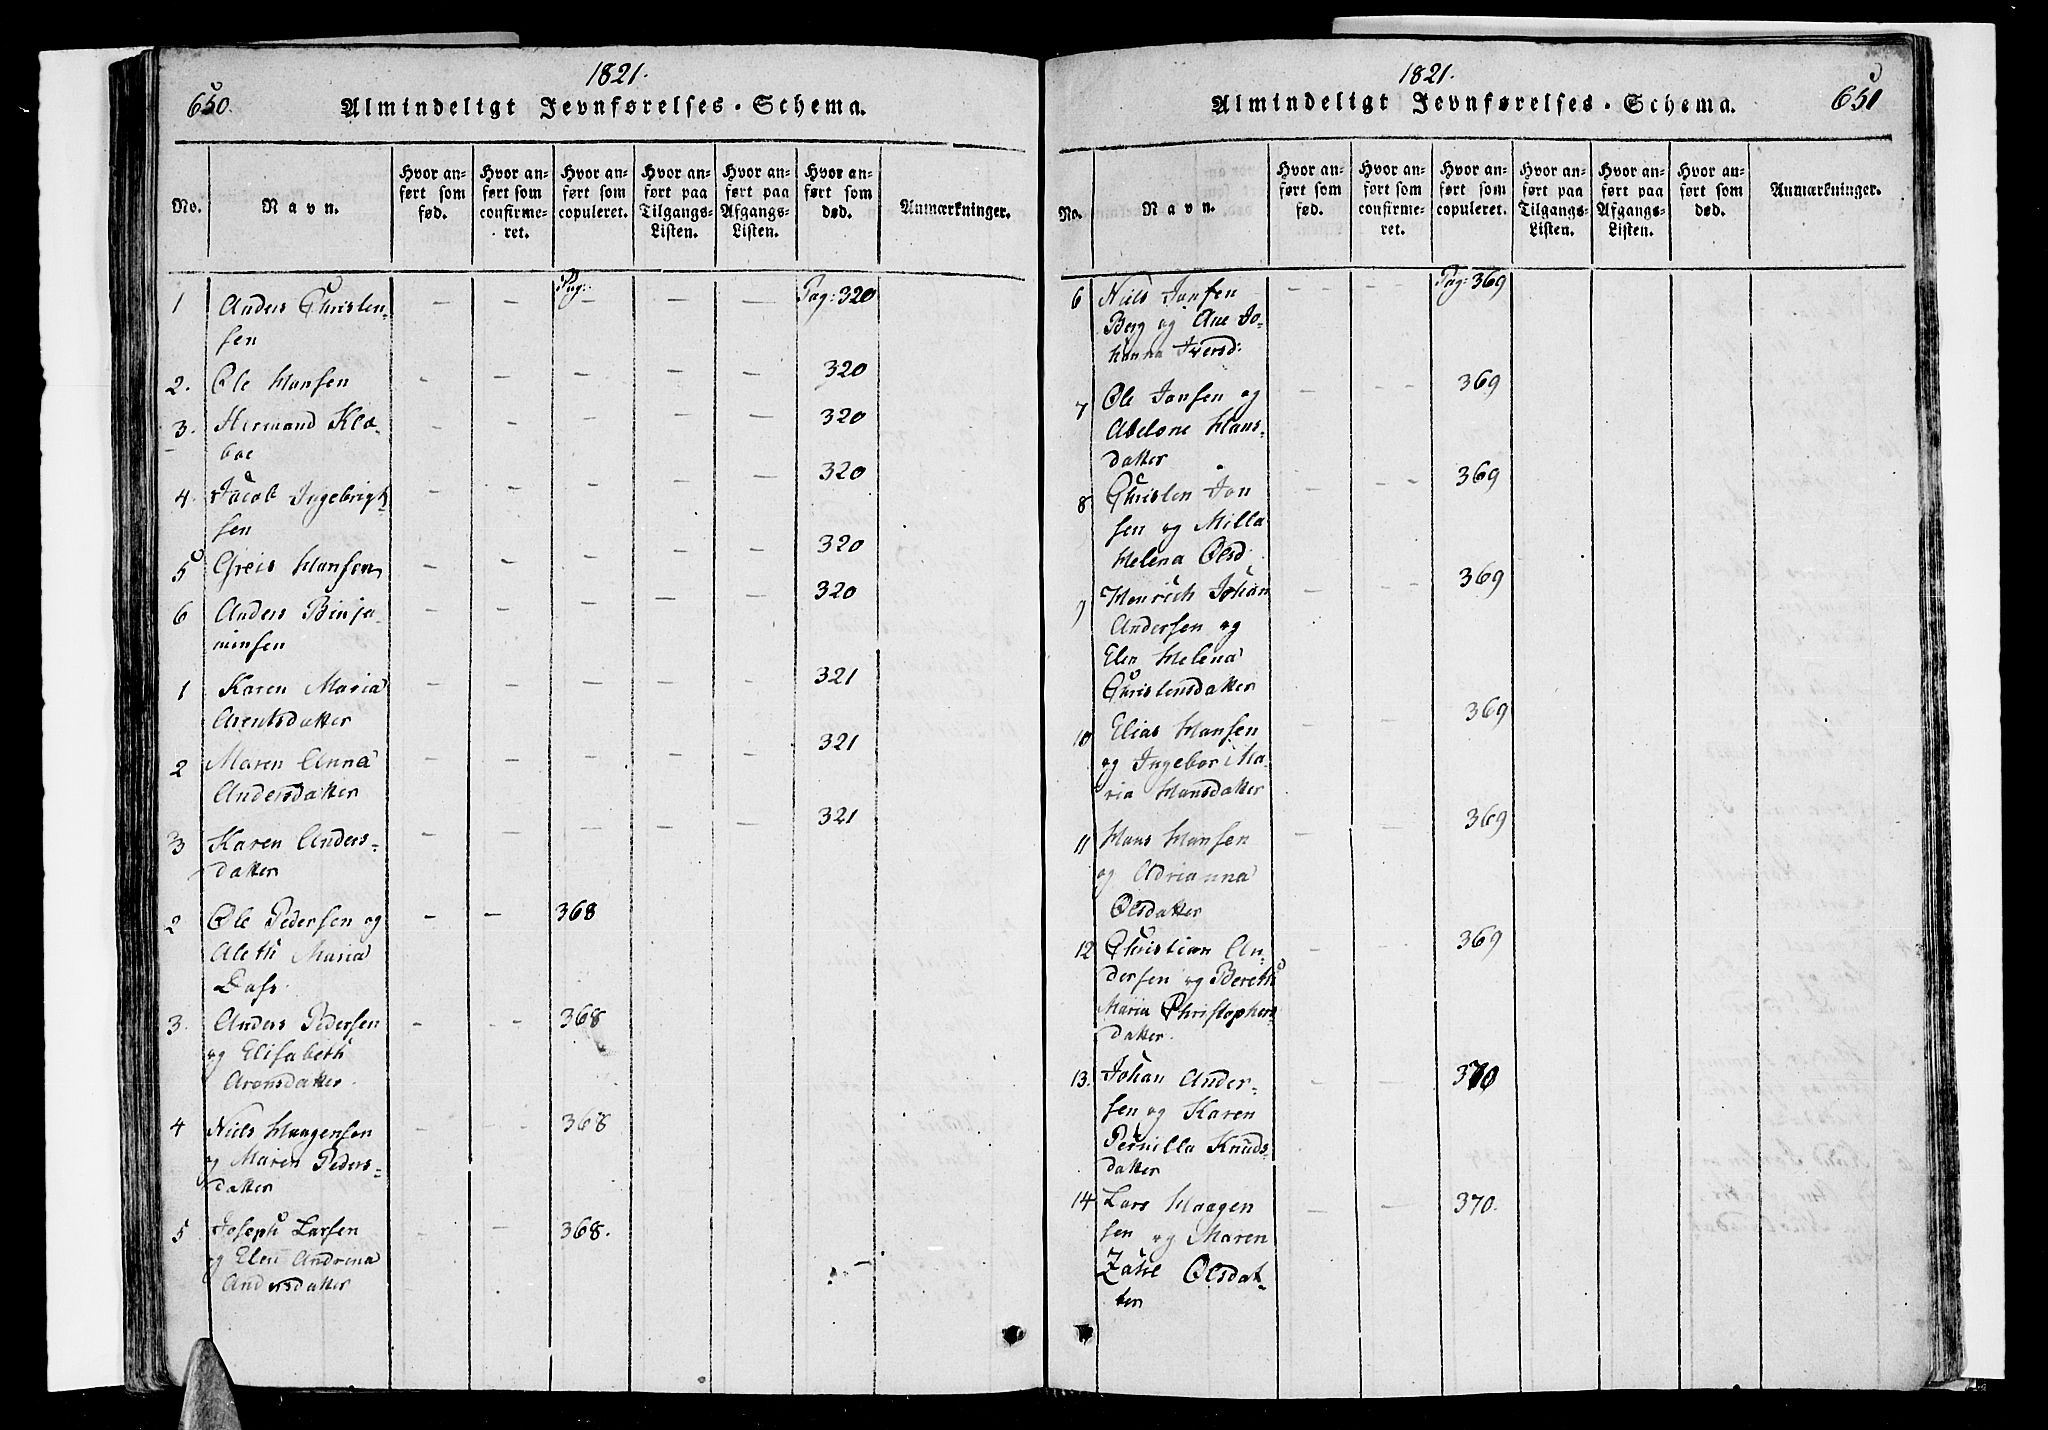 1821.
650.
Almindeligt Jevnførelses-Schema.
No.
Navn.
Hvor an-
ført som
fød.
Hvor an-
ført som
confirme-
ret.
Hvor an-
ført som
copuleret.
Hvor an-
ført paa
Tilgangs-
Listen.
Hvor an-
ført paa
Afgangs-
Listen.
Hvor an-
ført som
død.
Anmærkninger.
1 Anders Christen- — — Pag: — — — Pag: 320
sen
2. Ole Hansen — — — — — 320
3. Hermand Klæ- — — — — — 320
boe
4. Jacob Ingebrigt — — — — — 320
sen
5 Greis Hansen — — — — — 320
6 Anders Binja- — — — — — 320
minsen
1 Karen Maria — — — — — 321
Arentsdatter
2 Maren Anna — — — — — 321
Andersdatter
3 Karen Anders- — — — — — 321
datter
2 Ole Pedersen og — — 368
Aleth Maria
Dass.
3. Anders Pedersen — — 368
og Elisabeth
Aronsdatter.
4 Niels Haagensen — — 368
og Maren Peders-
datter
5 Joseph Larsen — — 368.
og Elen Andrina
Andersdatter
1821.
651
Almindeligt Jevnførelses-Schema.
No.
Navn.
Hvor an-
ført som
fød.
Hvor an-
ført som
confirme-
ret.
Hvor an-
ført som
copuleret.
Hvor an-
ført paa
Tilgangs-
Listen.
Hvor an-
ført paa
Afgangs-
Listen.
Hvor an-
ført som
død.
Anmærkninger.
6 Niels Jonsen — — Pag: 369
Berg og Ane Jo-
hanna Iversd:
7 Ole Jonsen og — — 369
Abelone Hans-
datter
8 Christen Jon — — 369
sen og Milla
Helena Olsd:
9 Henrich Johan — — 369
Andersen og
Elen Helena
Christensdatter
10 Elias Hansen — — 369
og Ingebor Ma-
ria Hansdatter
11 Hans Hansen — — 369
og Adrianna
Olsdatter
12 Christian An- — — 369
dersen og Bereth
Maria Christophers
datter.
13. Johan Ander- — — 370
sen og Karen
Pernilla Knuds-
datter
14 Lars Haagen — — 370.
sen og Maren
Zakil Olsdat-
ter